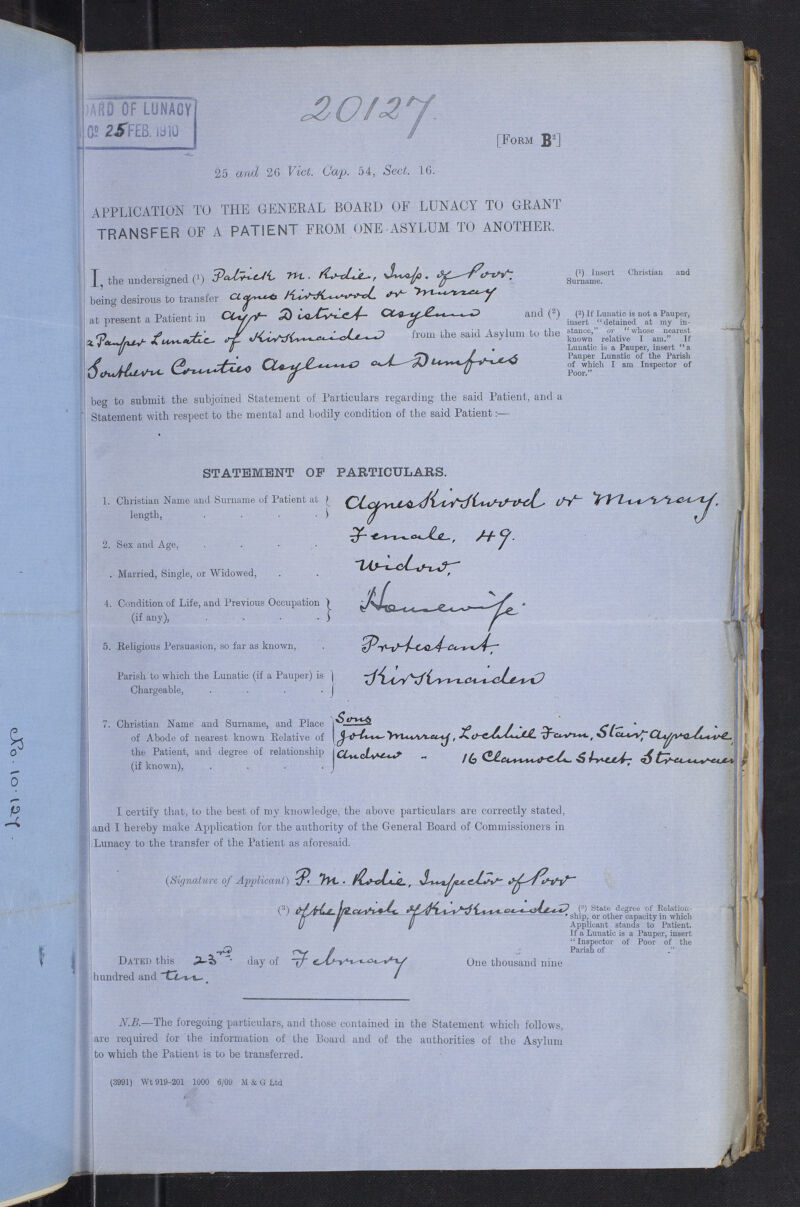 20127.
BOARD OF LUNACY
25 FEB. 1910
[FORM B²]
25 and 26 Vict. Cap. 54, Sect. 16.
APPLICATION TO THE GENERAL BOARD OF LUNACY TO GRANT
TRANSFER OF A PATIENT FROM ONE ASYLUM TO ANOTHER.
I, the undersigned (¹) Patrick M. Rodie, Insp. of Poor.
being desirous to transfer Agnes Kirkwood or Murray
at present a Patient in Ayr District Asylum and (²)
a Pauper Lunatic of Kirkmaiden from the said Asylum to the
Southern Counties Asylum at Dumfries
(¹) Insert Christian and
Surname.
(²) If Lunatic is not a Pauper,
insert "detained at my in-
stance," or "whose nearest
known relative I am." If
Lunatic is a Pauper, insert "a
Pauper Lunatic of the Parish
of which I am Inspector of
Poor."
beg to submit the subjoined Statement of Particulars regarding the said Patient, and a
Statement with respect to the mental and bodily condition of the said Patient:—
STATEMENT OF PARTICULARS.
1. Christian Name and Surname of Patient at length, Agnes Kirkwood or Murray.
2. Sex and Age, Female, 49.
. Married, Single, or Widowed, Widow.
4. Condition of Life, and Previous Occupation (if any), Housewife.
5. Religious Persuasion, so far as known, Protestant.
Parish to which the Lunatic (if a Pauper) is Chargeable, Kirkmaiden
7. Christian Name and Surname, and Place
of Abode of nearest known Relative of
the Patient, and degree of relationship
(if known),
Sons
John Murray, Lochhill Farm, Stair, Ayrshire,
Andrew " 16 Clannoch Street, Stranraer
I certify that, to the best of my knowledge, the above particulars are correctly stated,
and I hereby make Application for the authority of the General Board of Commissioners in
Lunacy to the transfer of the Patient as aforesaid.
(Signature of Applicant) P. M. Rodie, Inspector of Poor
(³) of the parish of Kirkmaiden.
(³) State degree of Relation-
ship, or other capacity in which
Applicant stands to Patient.
If a Lunatic is a Pauper, insert
"Inspector of Poor of the
Parish of ."
DATED this 23rd. day of February One thousand nine
hundred and ten.
N.B.—The foregoing particulars, and those contained in the Statement which follows,
are required for the information of the Board and of the authorities of the Asylum
to which the Patient is to be transferred.
(3991) Wt 919-201 1000 6/09 M & G Ltd
No. 10.127.